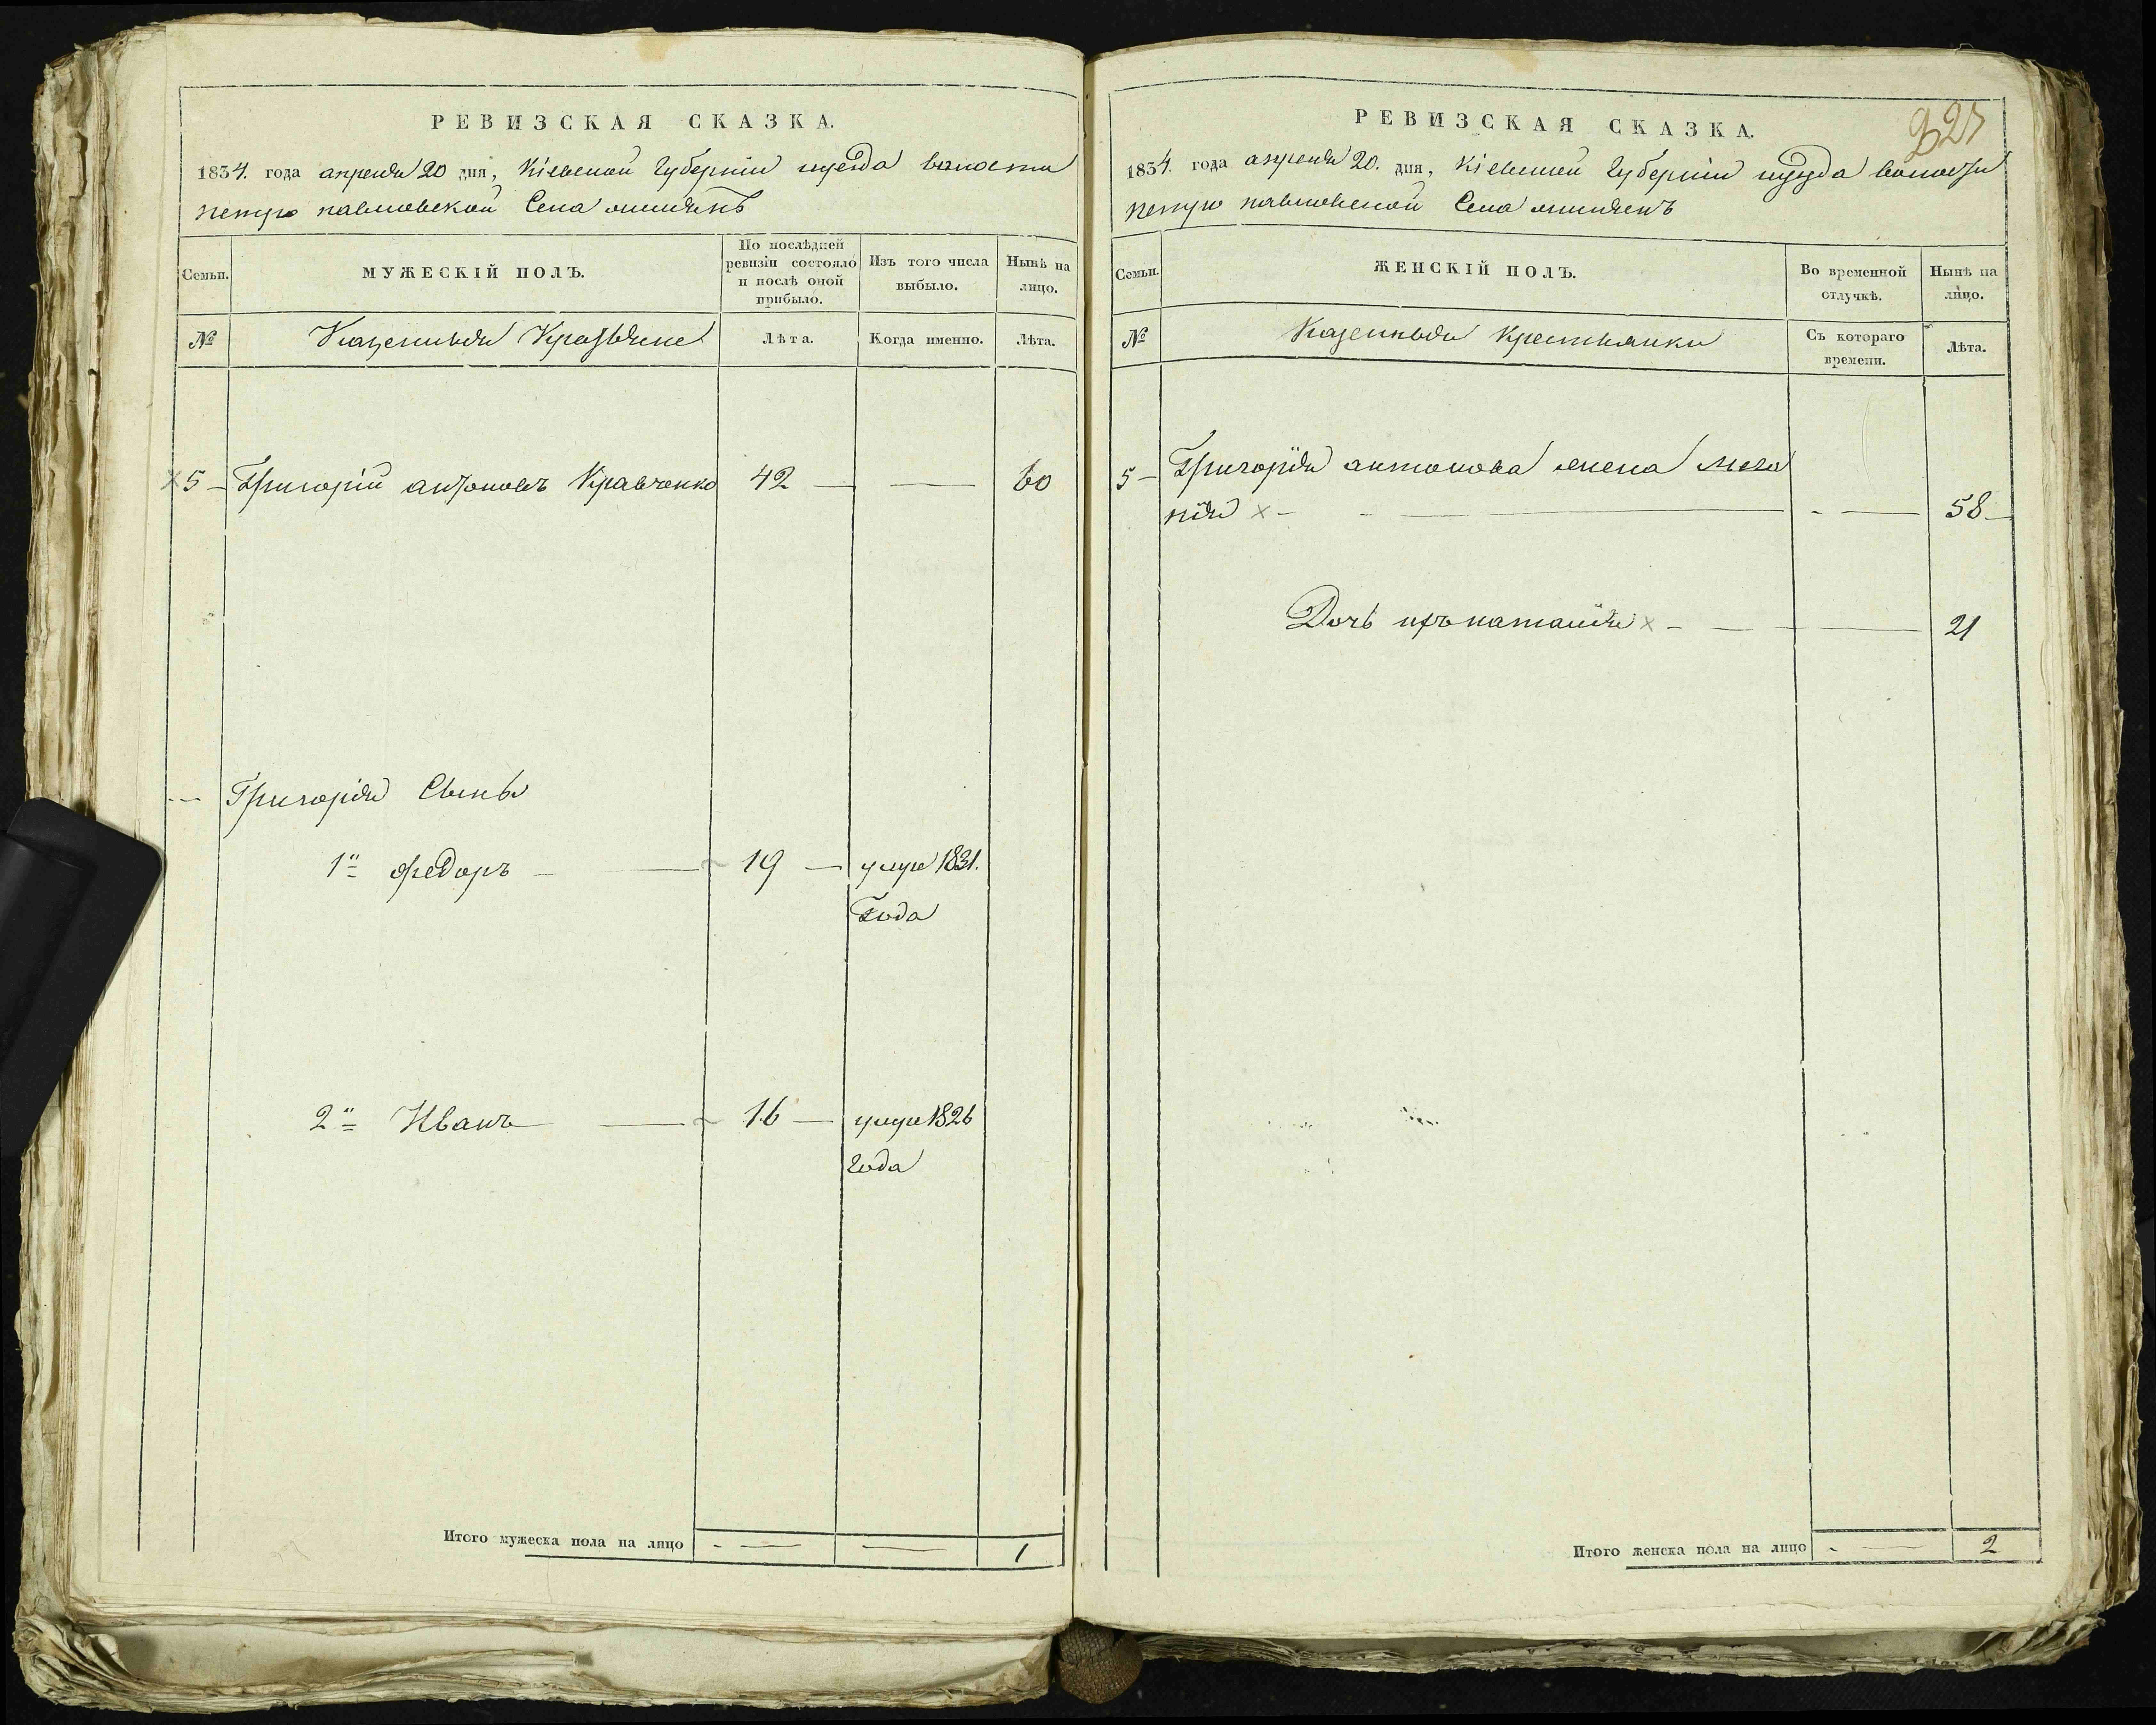 РЕВИЗСКАЯ СКАЗКА.
1834. года апреля 20 дня, Кіевской Губерніи уезда волости
петро павловской Села
Семьи.
МУЖЕСКІЙ ПОЛЪ.
По послѣдней ревизіи состояло и послѣ оной прибыло.
Изъ того числа выбыло.
Нынѣ на лицо.
№
Казенныя Крестьяне
Лѣта.
Когда именно.
Лѣта.
5 — Григорій антоновъ Кравченко 42 — — 60
Григорія Сыны
1й федоръ — 19 — умре 1831.
Года
2й Иванъ — 16 — умре 1826
Года
Итого мужеска пола на лицо — — 1
РЕВИЗСКАЯ СКАЗКА.
1834. года апреля 20. дня, Кіевской Губерніи уезда волости
петро павловской Села
Семьи.
ЖЕНСКІЙ ПОЛЪ.
Во временной отлучкѣ.
Нынѣ на лицо.
№
Казенныя Крестьянки
Съ котораго времени.
Лѣта.
5 — Григорія антонова жена Мела
нія × — — 58 —
Дочь ихъ наталія × — — 21
Итого женска пола на лицо — 2